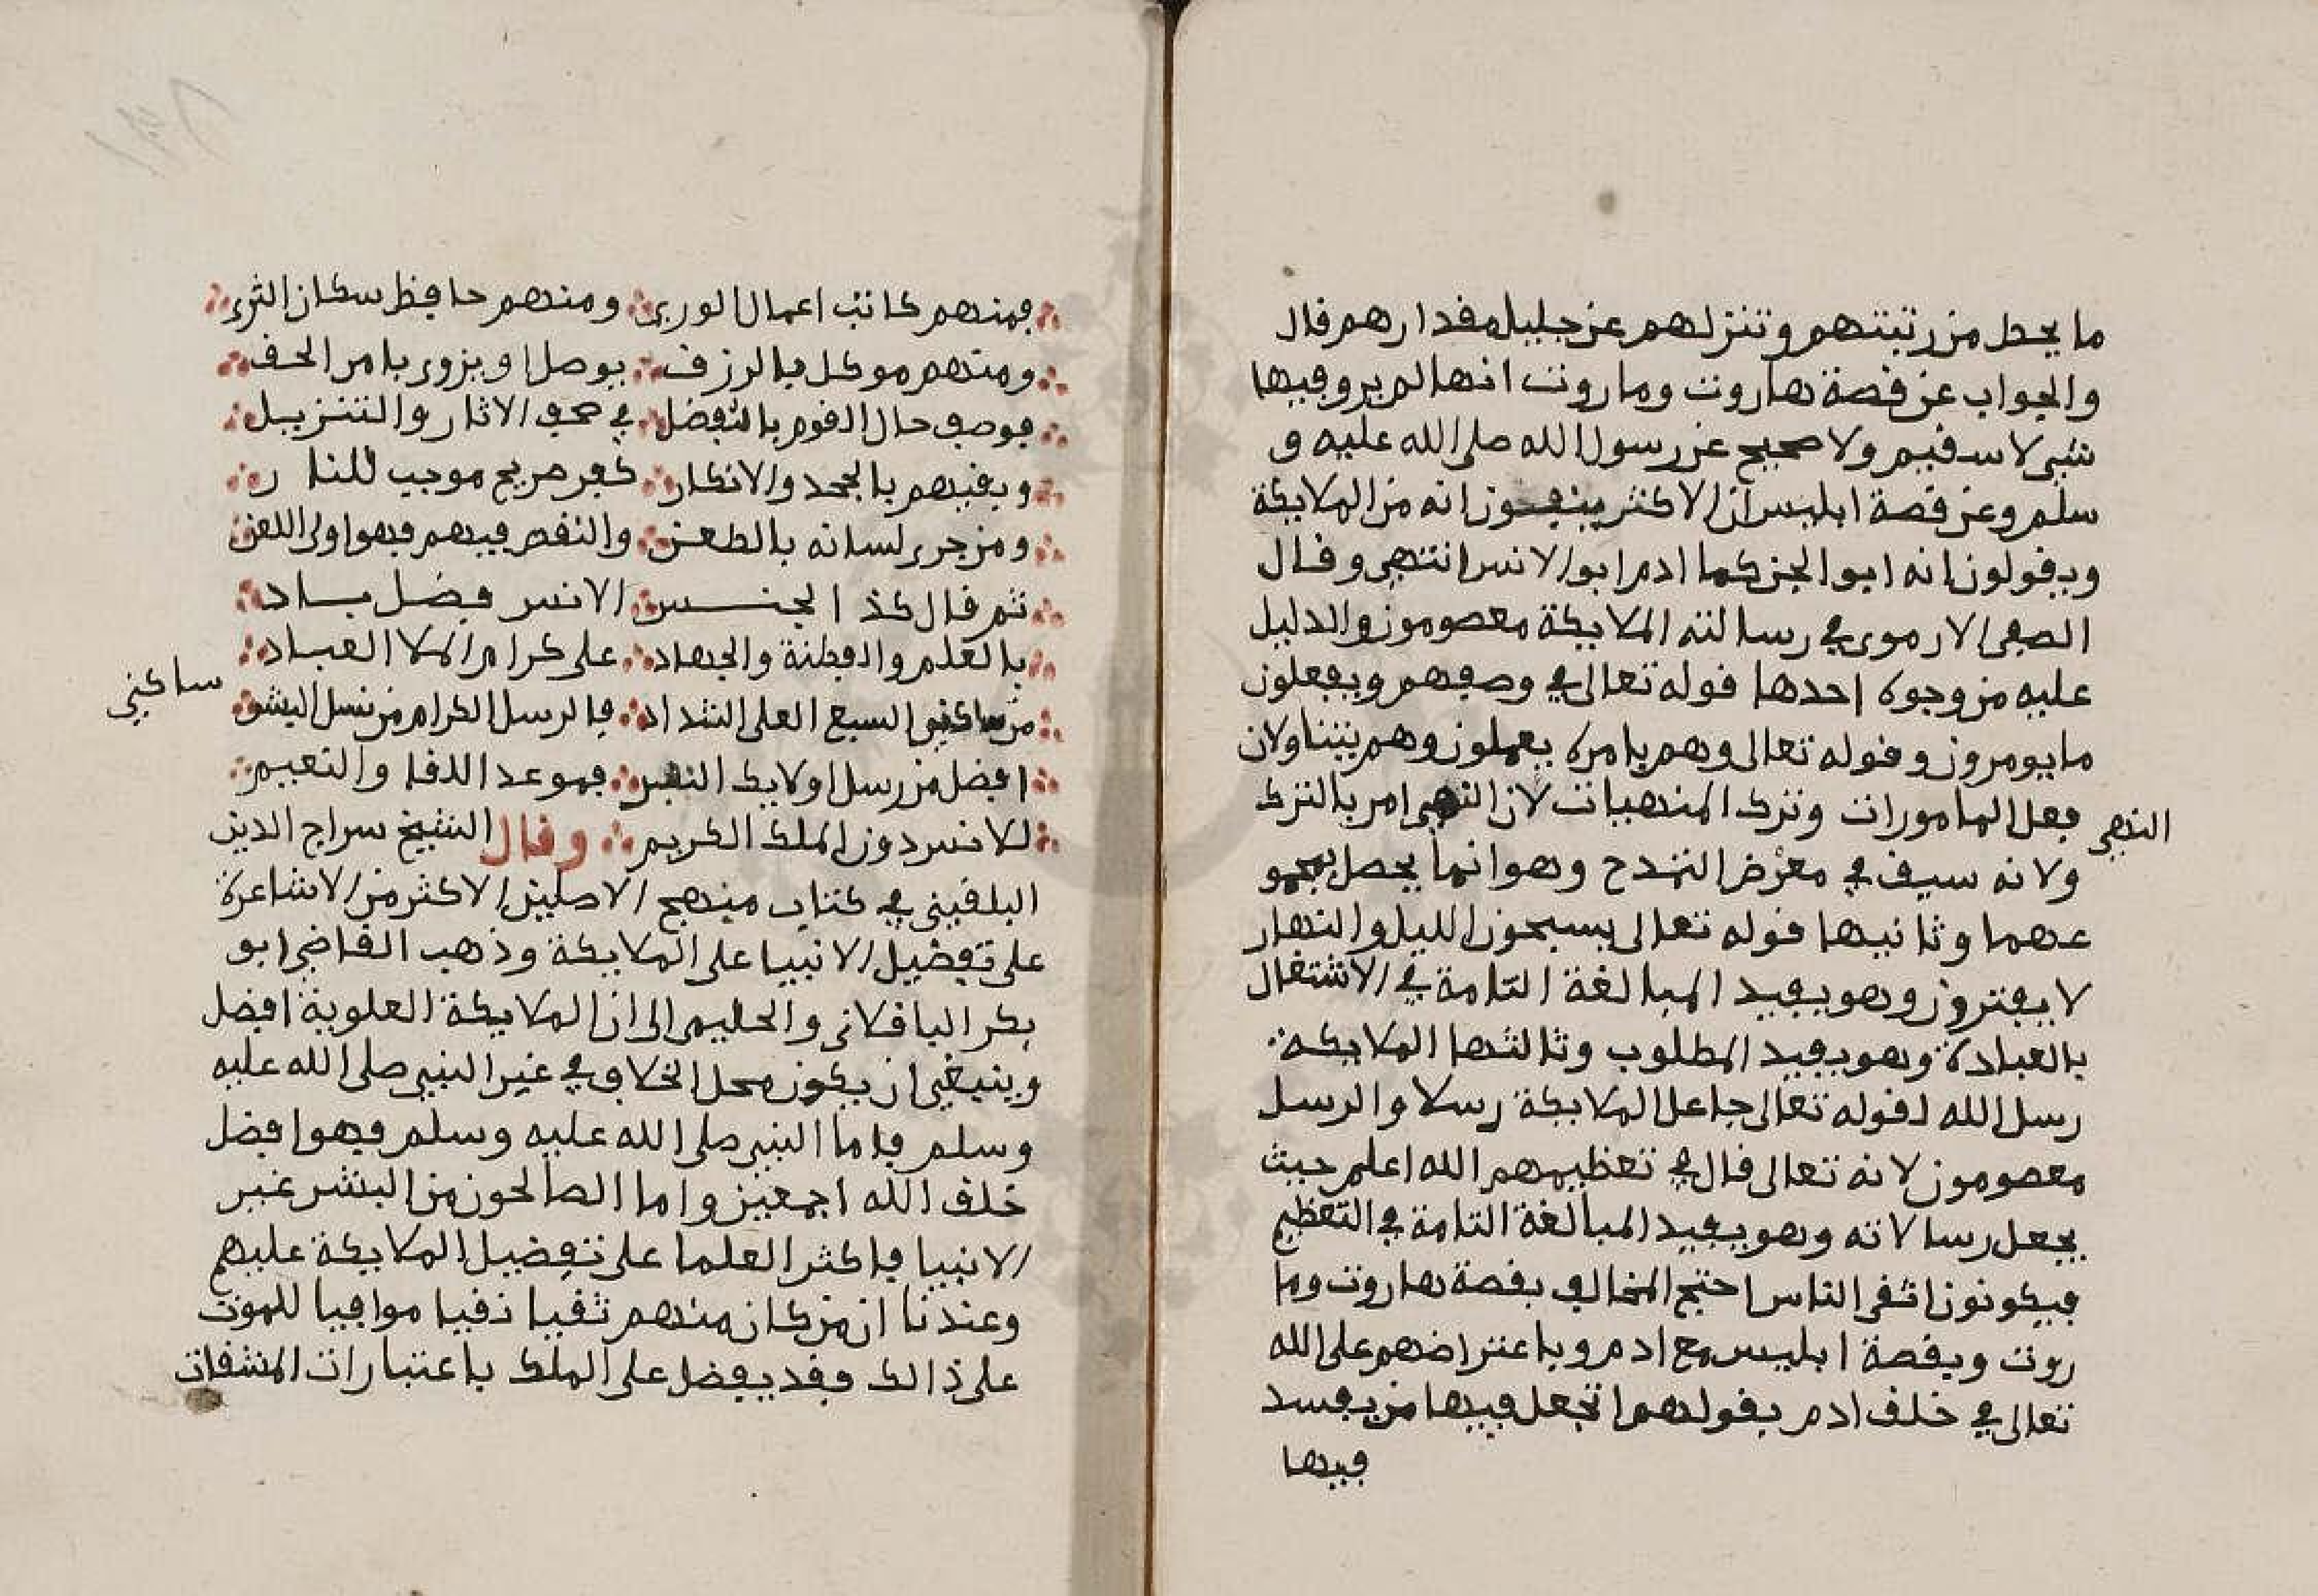 ما يحط من رتبتهم وتنزلهم عن جليل مقدارهم قال
والجواب عن قصة هاروت وماروت انها لم يرو فيها
شي لا سقيم ولا صحيح عن رسول الله صلى الله عليه و
سلم وعن قصة ابليس ان الاكثر ينفون انه من الملايكة
ويقولون انه ابو الجن كما ادم ابو الانس انتهى وقال
الصفي الارموي في رسالته الملايكة معصومون والدليل
عليه من وجوه احدها قوله تعالى في وصفهم ويفعلون
ما يومرون وقوله تعالى وهم بامره يعملون وهم يتناولان
فعل المامورات وترك المنهيات لان النهي امر بالترك
النهي
ولانه سيق في معرض التمدح وهو انما يحصل بمجمو
عهما وثانيها قوله تعالى يسبحون الليل والنهار
لا يفترون وهو يفيد المبالغة التامة في الاشتغال
بالعبادة وهو يفيد المطلوب وثالثها الملايكة
رسل الله لقوله تعالى جاعل الملايكة رسلا والرسل
معصومون لانه تعالى قال في تعظيمهم الله اعلم حيث
يجعل رسالاته وهو يفيد المبالغة التامة في التعظيم
فيكونون اتقى الناس احتج المخالف بقصة هاروت وما
روت وبقصة ابليس مع ادم وباعتراضهم على الله
تعالى في خلق ادم بقولهم اتجعل فيها من يفسد
فيها
فمنهم كاتب اعمال الورى ومنهم حافظ سكان الثرى
ومنهم موكل بالرزق يوصل او يزوى بامر الحق
فوصف حال القوم بالتفضل في صحف الاثار والتنزيل
ويفيهم بالجحد والانكار كفر صريح موجب للنار
ومن جرى لسانه بالطعن والنقص فيهم فهو اولى اللعن
ثم قال كذا الجنس الانس فضل باد
بالعلم والفطنة والجهاد على كرام الملا العباد
من ساكنوا السبع العلى الشداد فالرسل الكرام من نسل البشر
ساكني
افضل من رسل اولايك النفر فموعد اللقا والنعيم
للانس دون الملك الكريم وقال الشيخ سراج الدين
البلقيني في كتاب منهج الاصلين الاكثر من الاشاعرة
على تفضيل الانبيا على الملايكة وذهب القاضي ابو
بكر الباقلاني والحليمي الى ان الملايكة العلوية افضل
وينبغي ان يكون محل الخلاف في غير النبي صلى الله عليه
وسلم فاما النبي صلى الله عليه وسلم فهو افضل
خلق الله اجمعين واما الصالحون من البشر غير
الانبيا فاكثر العلما على تفضيل الملايكة عليهم
وعندنا ان من كان منهم تقيا نقيا موافيا للموت
على ذالك فقد يفضل على الملك باعتبارات المشقات